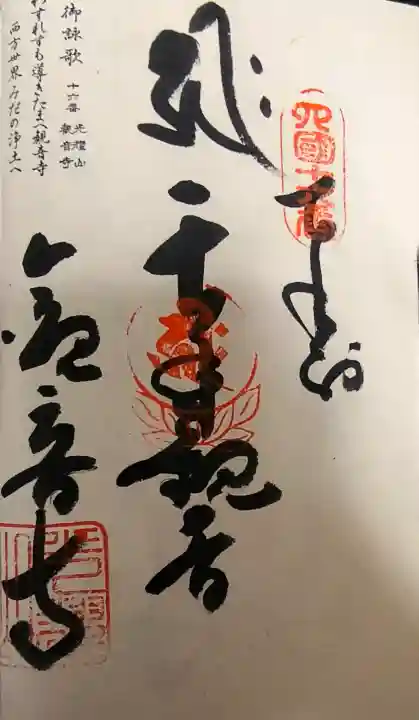 奉拝
四國十六番
千手観音
観音寺
御詠歌
十六番 光耀山
観音寺
わすれずも導きたまへ観音寺
西方世界みだの浄土へ